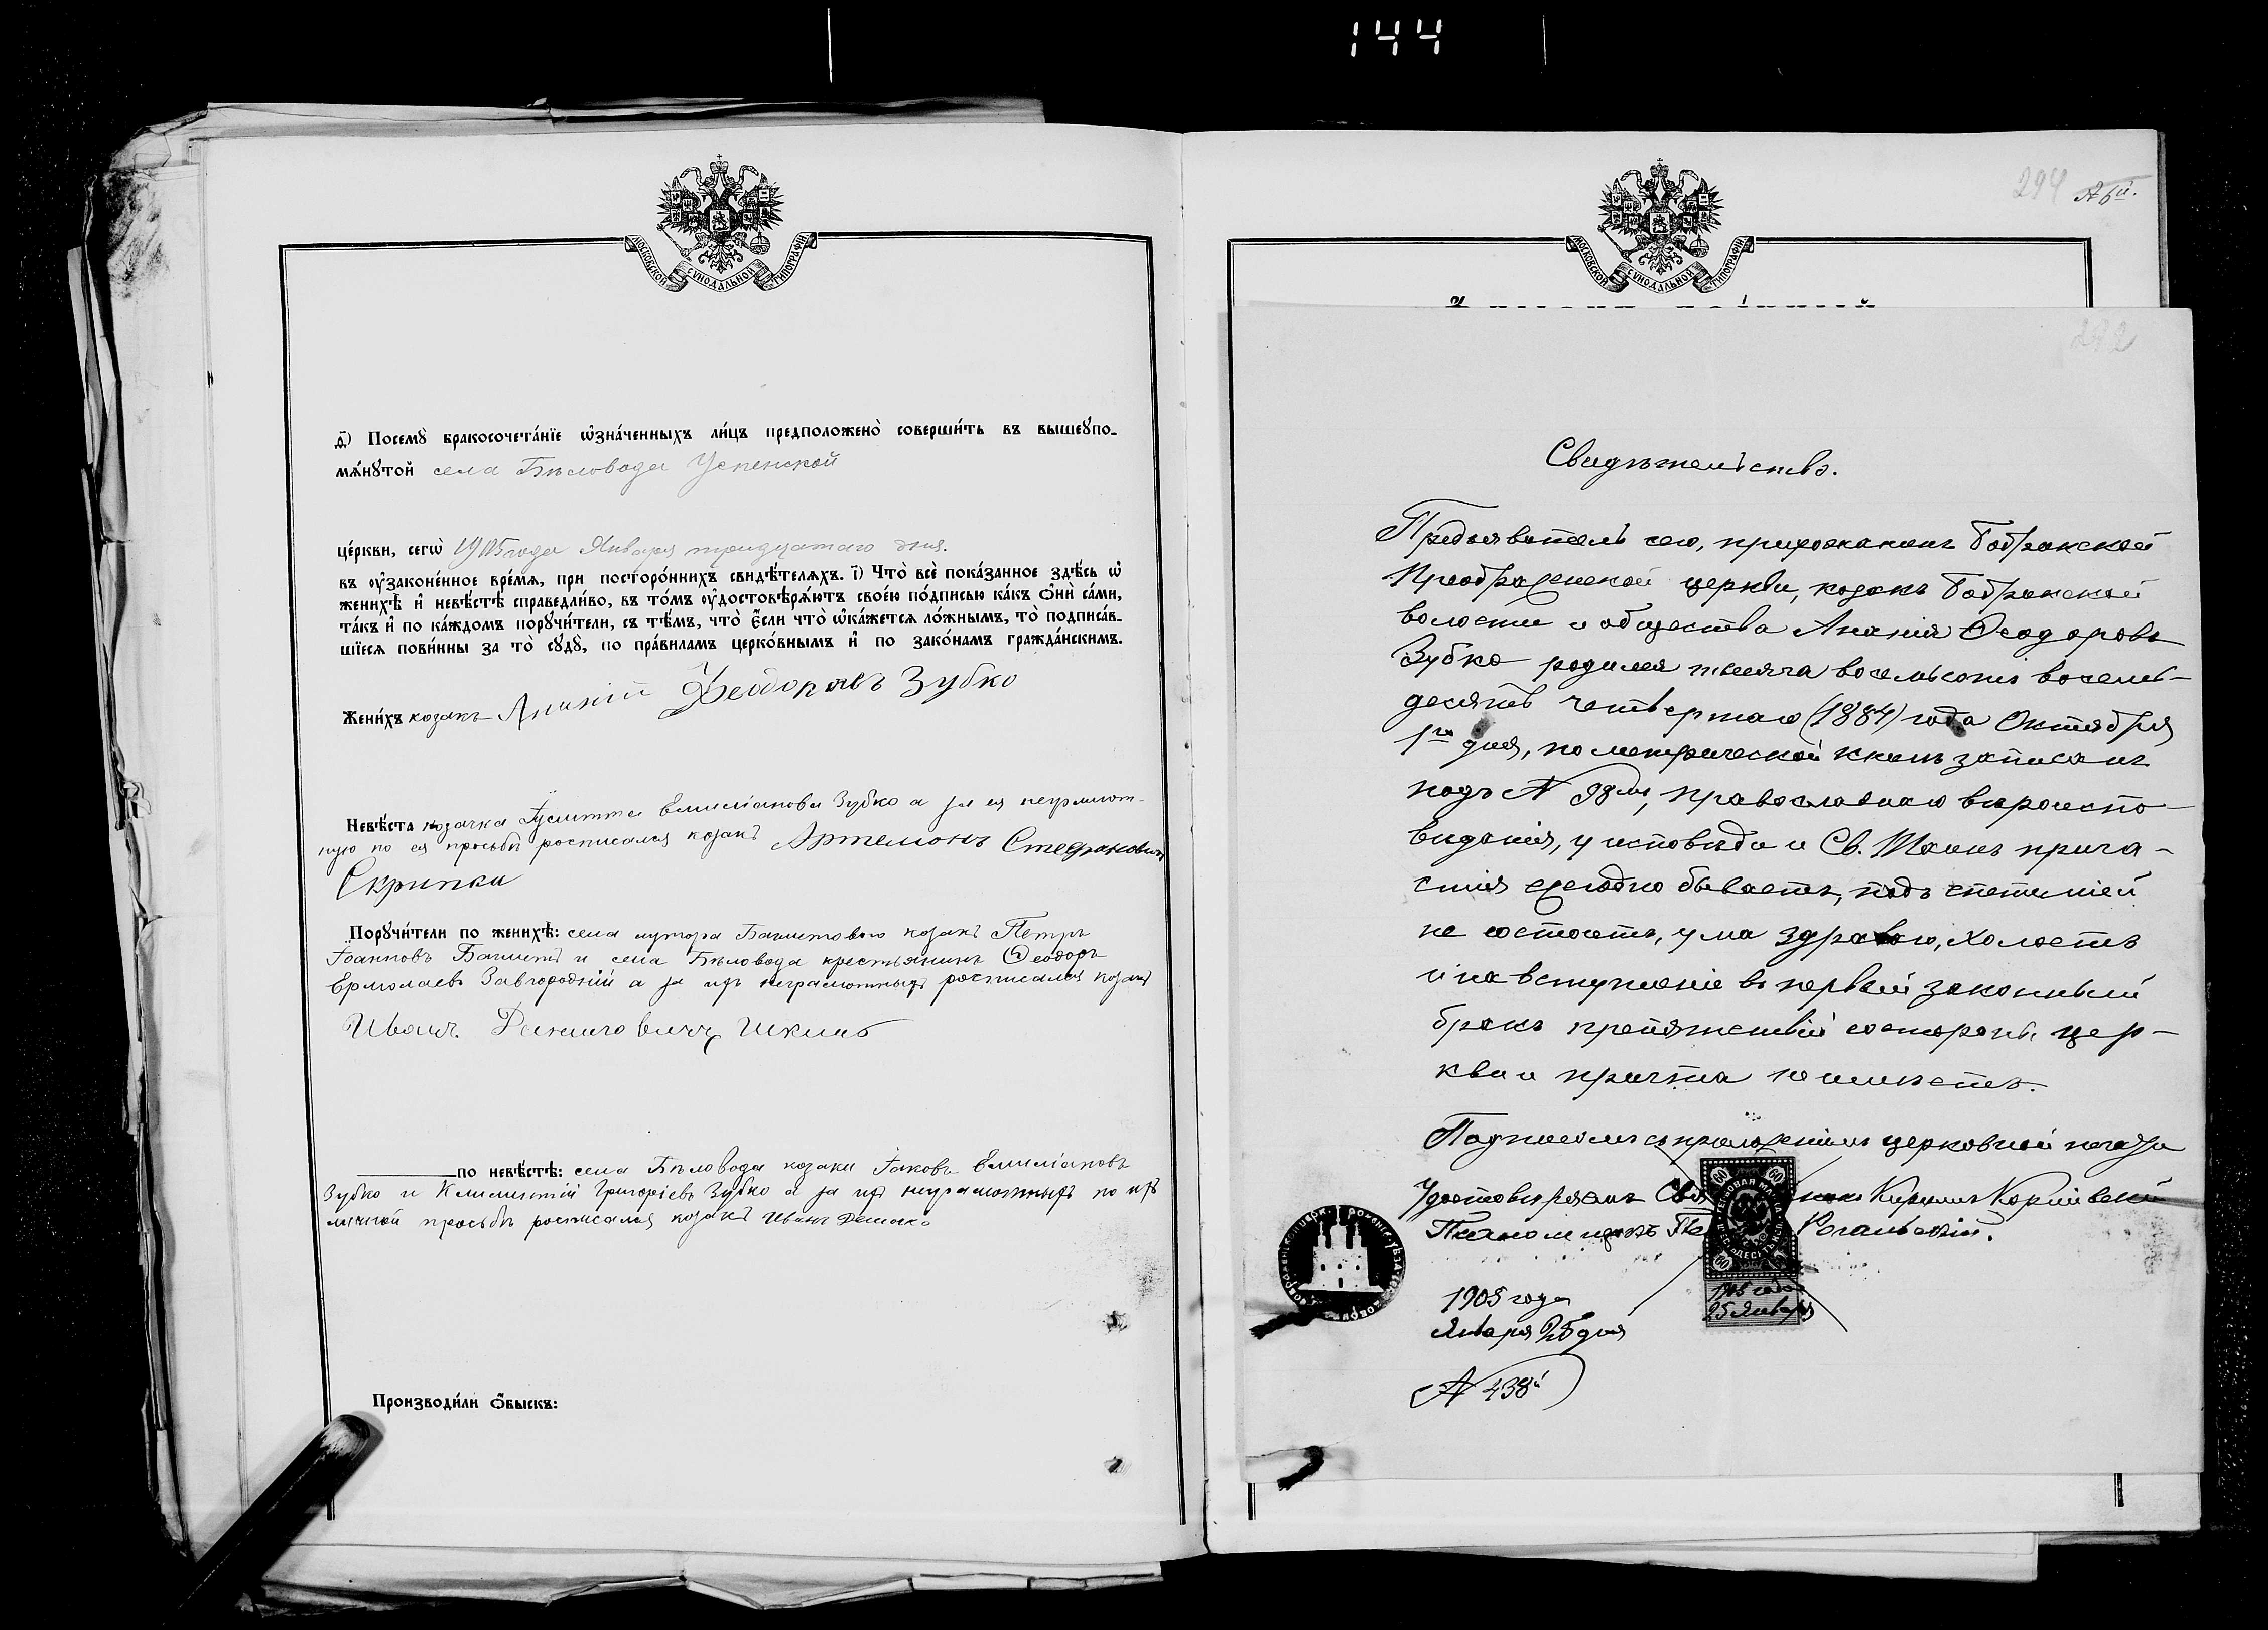 144
МОСКОВСКОЙ СѴНОДАЛЬНОЙ ТИПОГРАФІИ
ѳ҃) Посемꙋ̀ бракосочета́нїе ѡ҆зна́ченныхъ ли́цъ предположено̀ соверши́ть въ вышеꙋпо-
мѧ́нꙋтой села Бѣловода Успенской
це́ркви, сегѡ̀ 1905 года Января тридцатаго дня.
въ ᲂу҆зако́ненное вре́мѧ, при посторо́ннихъ свидѣ́телѧхъ. і҃) Что̀ всѐ пока́занное здѣ́сь ѡ҆
женихѣ̀ и҆ невѣ́стѣ справедли́во, въ то́мъ ᲂу҆достовѣрѧ́ютъ свое́ю по́дписью ка́къ ѻ҆нѝ са́ми,
та́къ и҆ по ка́ждомъ порꙋчи́тели, съ тѣ́мъ, что̀ є҆́сли что̀ ѡ҆ка́жетсѧ ло́жнымъ, то̀ подписа́в-
шїесѧ пови́нны за то̀ сꙋдꙋ̀, по пра́виламъ церко́внымъ и҆ по зако́намъ гражда́нскимъ.
Жени́хъ козакъ Ананій Феодоровъ Зубко
Невѣ́ста козачка Іулитта Емиліанова Зубко а за ея неграмот-
ную по ея просьбѣ росписался козакъ Артемонъ Стефановичъ
Скрипка
Порꙋчи́тели по женихѣ̀: села хутора козакъ Петръ
Іоанновъ и села Бѣловода крестьянинъ Ѳеодоръ
Ермолаевъ Завгородній а за ихъ неграмотныхъ росписался козакъ
Иванъ Даниловичъ
по невѣ́стѣ: села Бѣловода козаки Іаковъ Емиліановъ
Зубко и Климентій Григоріевъ Зубко а за ихъ неграмотныхъ по ихъ
личной просьбѣ росписался козакъ Иванъ
Производи́ли ѻ҆́быскъ:
294 № 6й.
МОСКОВСКОЙ СѴНОДАЛЬНОЙ ТИПОГРАФІИ
292
Свидѣтельство.
Предъявитель сего, прихожанинъ Бобрикской
Преображенской церкви, козакъ Бобрикской
волости и общества Ананія Ѳеодоровъ
Зубко родился тысяча восемьсотъ восемь-
десятъ четвертаго (1884) года Октября
1го дня, по метрической книгѣ записанъ
подъ № 98мъ, православнаго вѣроиспо-
вѣданія, у исповѣди и Св. Таинъ прича-
стія ежегодно бываетъ, подъ епетиміей
не состоитъ, ума здраваго, холостъ
и на вступленіе въ первый законный
бракъ препятствій со стороны цер-
кви и причта не имѣетъ.
Подписомъ съ приложеніемъ церковной печати
Удостовѣряемъ Священникъ Кириллъ
Псаломщикъ
1905 года
Января 25 дня
№ 438й
60 60
1905 года
25 Января